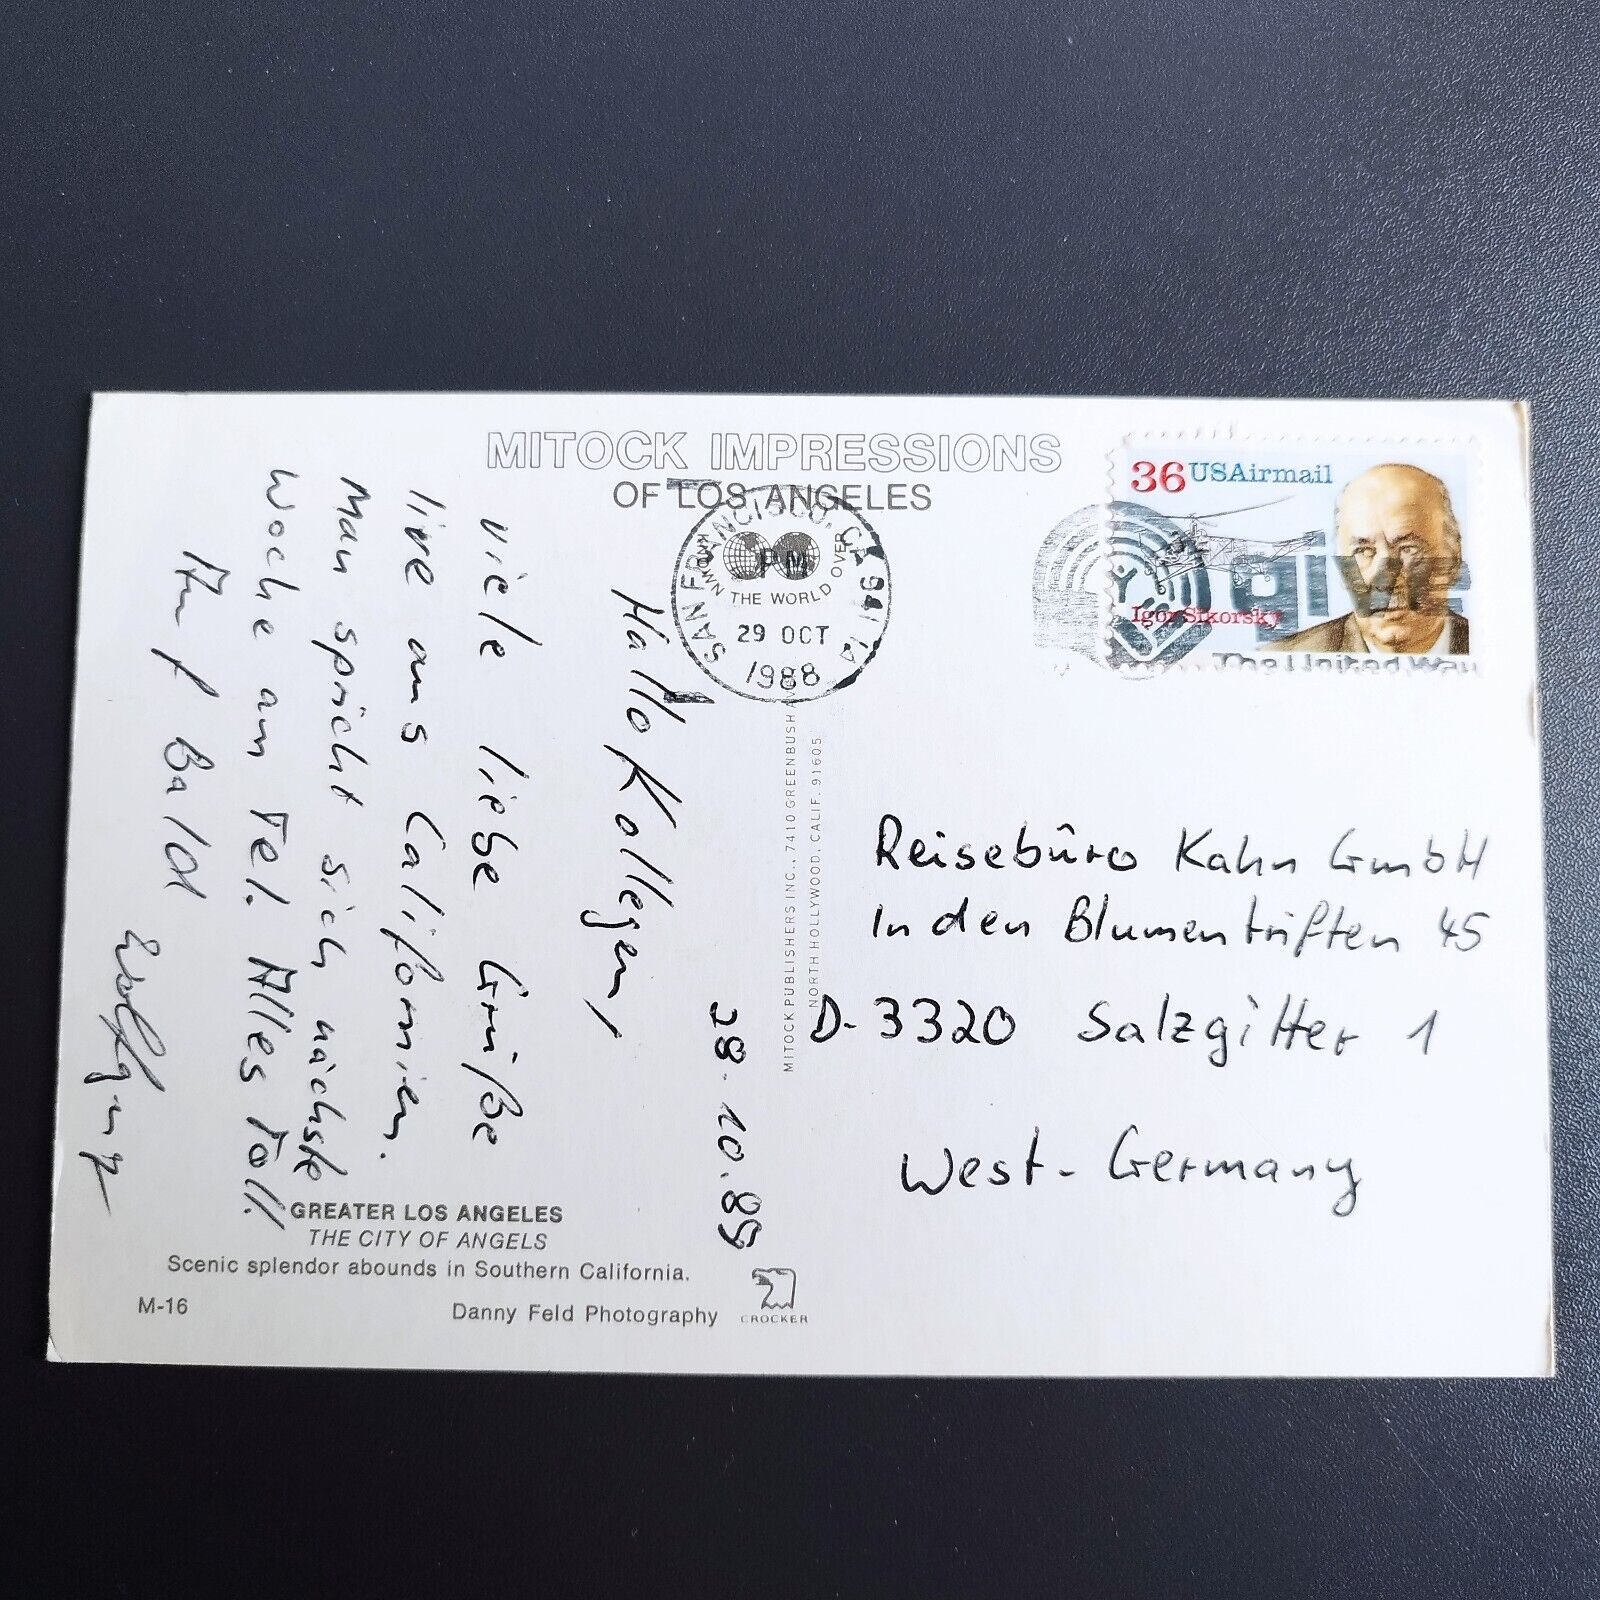 MITOCK IMPRESSIONS
OF LOS ANGELES
SAN FRANCISCO, CA 941
THE WORLD OVER
PM
29 OCT
1988
36 USAirmail
Igor Sikorsky
give
The United Way
28.10.89
Hallo Kollegen,
viele liebe Grüße
live aus Californien.
Man spricht sich nächste
Woche am Tel. Alles Toll!
Auf bald
Wolfgang
MITOCK PUBLISHERS INC., 7410 GREENBUSH AVE.
NORTH HOLLYWOOD, CALIF. 91605
Reisebüro Kahn GmbH
In den Blumentriften 45
D-3320 Salzgitter 1
West-Germany
GREATER LOS ANGELES
THE CITY OF ANGELS
Scenic splendor abounds in Southern California.
M-16
Danny Feld Photography
CROCKER